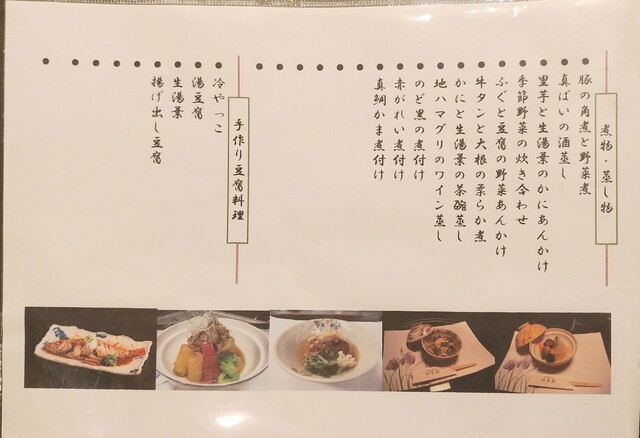 煮物・蒸し物
豚の角煮と野菜煮
真ばいの酒蒸し
里芋と生湯葉のかにあんかけ
季節野菜の炊き合わせ
ふぐと豆腐の野菜あんかけ
牛タンと大根の柔らか煮
かにと生湯葉の茶碗蒸し
地ハマグリのワイン蒸し
のど黒の煮付け
赤がれい煮付け
真鯛かま煮付け
手作り豆腐料理
冷やっこ
湯豆腐
生湯葉
揚げ出し豆腐